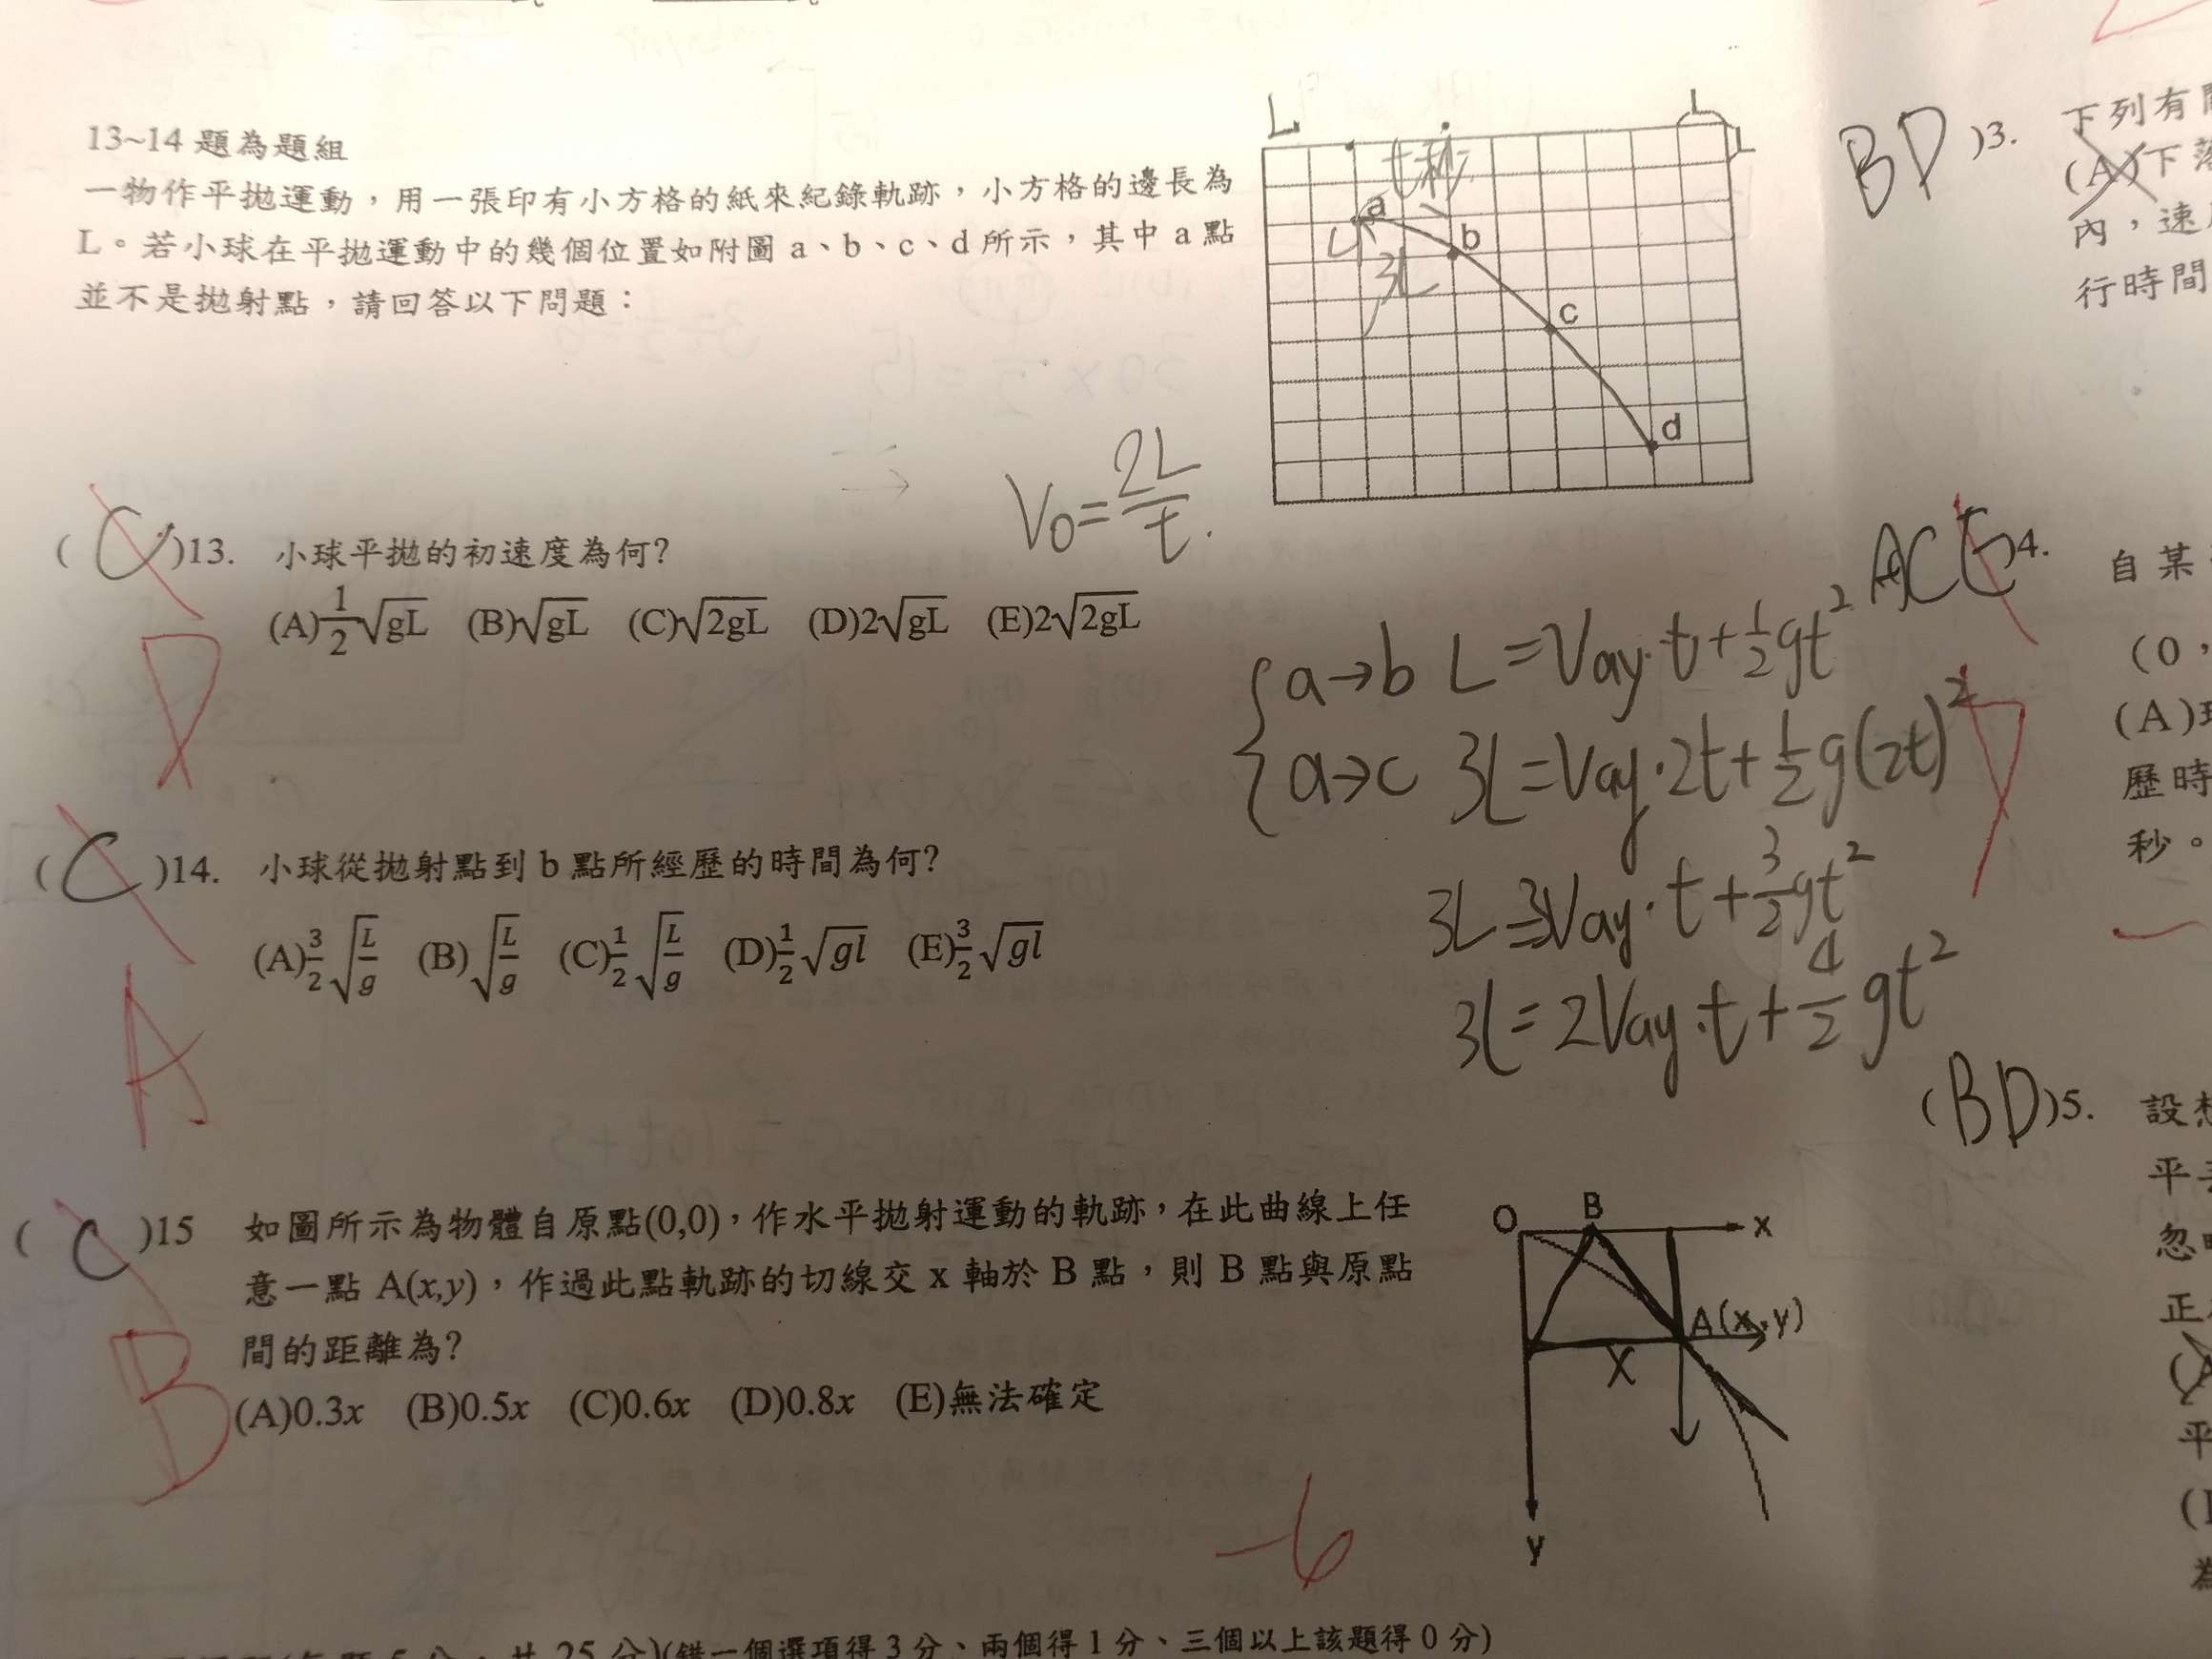 13~14 題為題組
一物作平拋運動，用一張印有小方格的紙來紀錄軌跡，小方格的邊長為
L。若小球在平拋運動中的幾個位置如附圖 a、b、c、d 所示，其中 a 點
並不是拋射點，請回答以下問題：
L
L
L
t秒
a
b
c
d
L
3L
V₀=2L/t
(C)13. 小球平拋的初速度為何?
(A)1/2√gL (B)√gL (C)√2gL (D)2√gL (E)2√2gL
D
{a→b L=Vay·t+1/2gt²
a→c 3L=Vay·2t+1/2g(2t)²
3L=3Vay·t+3/2gt²
3L=2Vay·t+4/2gt²
(C)14. 小球從拋射點到 b 點所經歷的時間為何?
(A)3/2√L/g (B)√L/g (C)1/2√L/g (D)1/2√gl (E)3/2√gl
A
(C)15 如圖所示為物體自原點(0,0)，作水平拋射運動的軌跡，在此曲線上任
意一點 A(x,y)，作過此點軌跡的切線交 x 軸於 B 點，則 B 點與原點
間的距離為?
(A)0.3x (B)0.5x (C)0.6x (D)0.8x (E)無法確定
B
O B x
A(x,y)
X
y
-6
25 分)(錯一個選項得 3 分、兩個得 1 分、三個以上該題得 0 分)
BD)3. 下列有
(A)下落
內，速
行時間
ACE)4. 自某
(0，
(A)
歷時
秒。
(BD)5. 設想
平
忽
正
(A
平
為